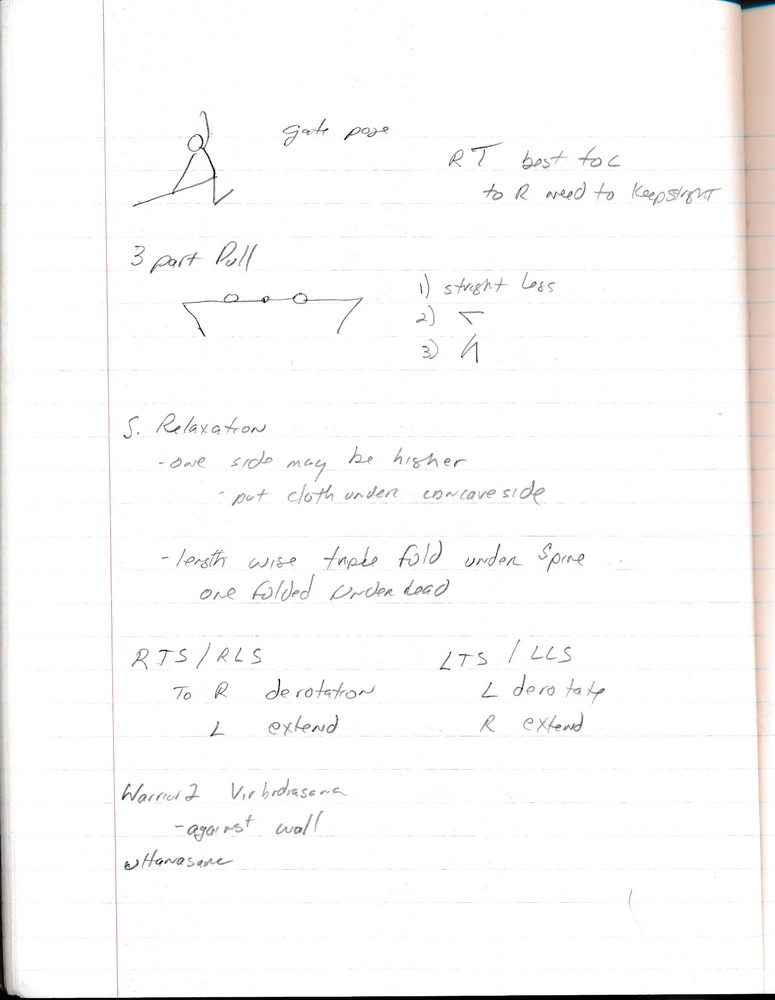 gate pose
RT best to L
to R need to keep stright
3 part Pull
1) stright Legs
2)
3)
S. Relaxation
- one side may be higher
- put cloth under concave side
- length wise triple fold under Spine
one folded under head
RTS/RLS
To R derotation
L extend
LTS / LLS
L derotate
R extend
Warrior 2 Virbrdrasana
- against wall
uttanasana